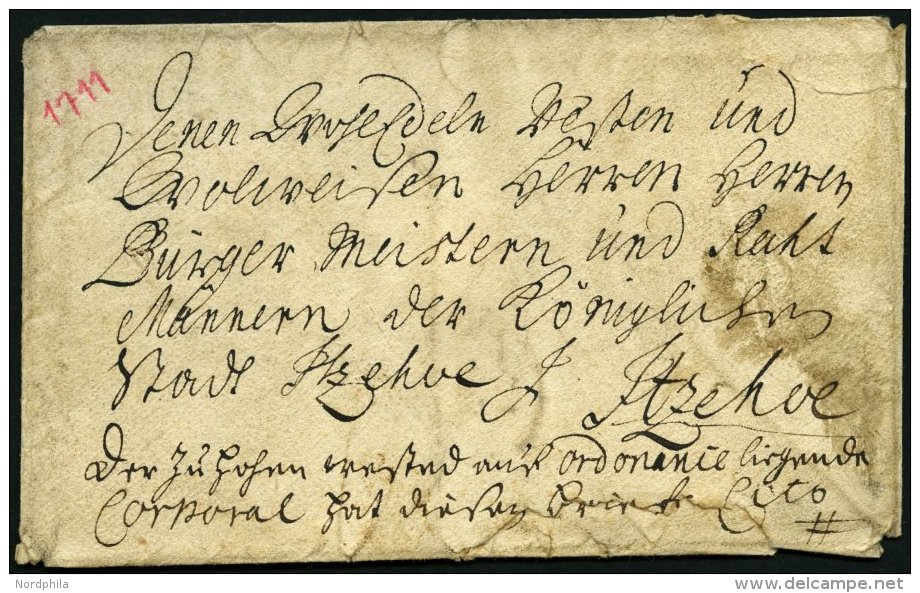 1711
Denen WohlEdeln Vesten und
Wolweisen Herren Herren
Bürger Meistern und Raht
Männern der Königlichen
Stadt Itzehoe Itzehoe
Der zu hohen auf ordonance liegende
Corporal hat diesen brieff Cito
Nordphila
delcampe.net